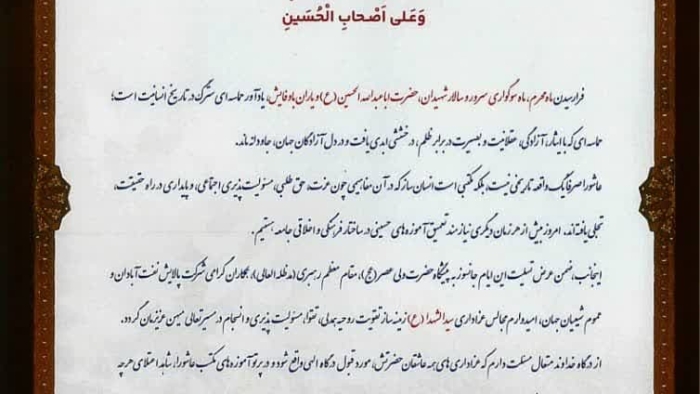 وَعَلى اَصْحابِ الْحُسَينِ
فرارسیدن ماه محرم، ماه سوگواری سرور و سالار شهیدان، حضرت اباعبدالله الحسین (ع) و یاران باوفایش، یادآور حماسه ای سترگ در تاریخ انسانیت است؛
حماسه ای که با ایثار، آزادگی، عقلانیت و بصیرت در برابر ظلم، درخششی ابدی یافت و در دل آزادگان جهان، جاودانه ماند.
عاشورا صرفا یک واقعه تاریخی نیست، بلکه مکتبی است انسان ساز که در آن مفاهیمی چون عزت، حق طلبی، مسئولیت پذیری اجتماعی، و پایداری در راه حقیقت،
تجلی یافته اند. امروز بیش از هر زمان دیگری نیازمند تعمیق آموزه های حسینی در ساختار فرهنگی و اخلاقی جامعه هستیم.
اینجانب، ضمن عرض تسلیت این ایام جانسوز به پیشگاه حضرت ولی عصر (عج)، مقام معظم رهبری (مدظله العالی)، همکاران گرامی شرکت پالایش نفت آبادان و
عموم شیعیان جهان، امیدوارم مجالس عزاداری سیدالشهدا (ع) زمینه ساز تقویت روحیه همدلی، تقوا، مسئولیت پذیری و انسجام در مسیر تعالی میهن عزیزمان گردد.
از درگاه خداوند متعال مسئلت دارم که عزاداری های همه عاشقان حضرتش، مورد قبول درگاه الهی واقع شود و در پرتو آموزه های مکتب عاشورا، شاهد اعتلای هرچه